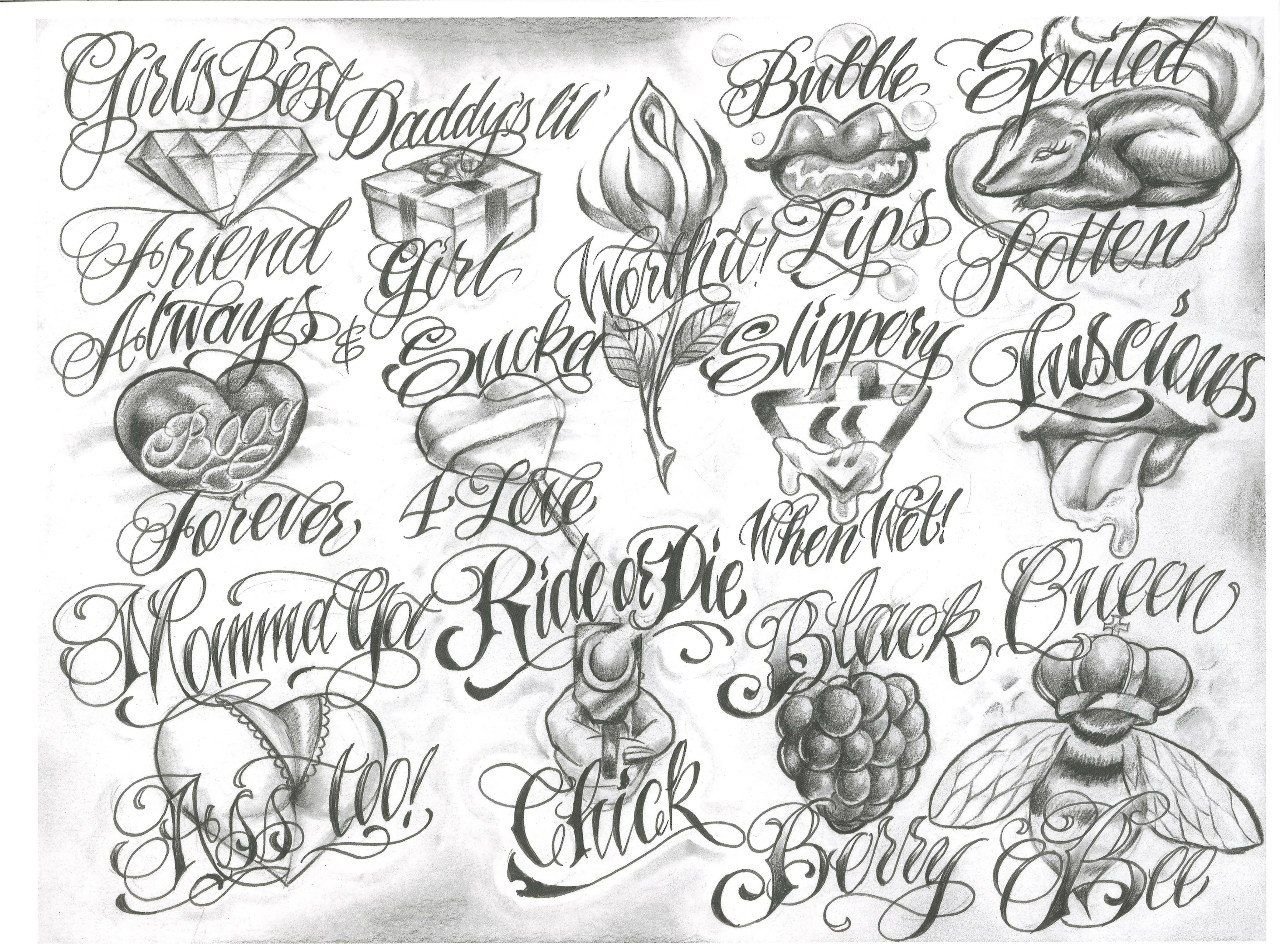 Girl's Best
Friend
Daddy's lil'
Girl
Worth it!
Bubble
Lips
Spoiled
Rotten
Always &
Forever
Sucka
4 Love
Slippery
When Wet!
Luscious
Momma
Ass too!
Ride or Die
Chick
Black
Berry
Queen
Bee